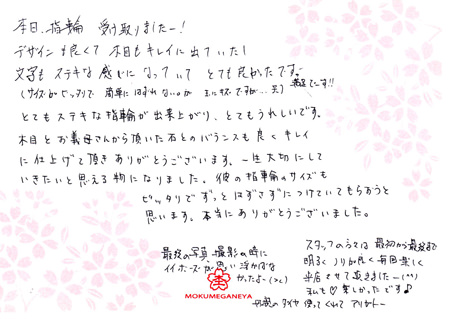 本日、指輪 受け取りましたー!
デザインも良くて 木目もキレイに出ていたし
文字も ステキな感じになっていて とても良かったですー
(サイズがピッタリで 簡単にはずれないのが 玉にキズですが…笑) 満足でーす!!
とてもステキな指輪が出来上がり、とてもうれしいです。
木目とお義母さんから頂いた石とのバランスも良くキレイ
に仕上げて頂きありがとうございます。一生大切にして
いきたいと思える物になりました。彼の指輪のサイズも
ピッタリでずっとはずさずにつけていてもらおうと
思います。本当にありがとうございました。
最後の写真撮影の時に
イイポーズが思い浮かばな
かったよー(><)
MOKUMEGANEYA
スタッフの方々は 最初から最後まで
明るく ノリが良く 毎回楽しく
来店させて頂きましたー(^^)
私も♡楽しかったです♪
ダイヤ 使ってくれて アリガトー